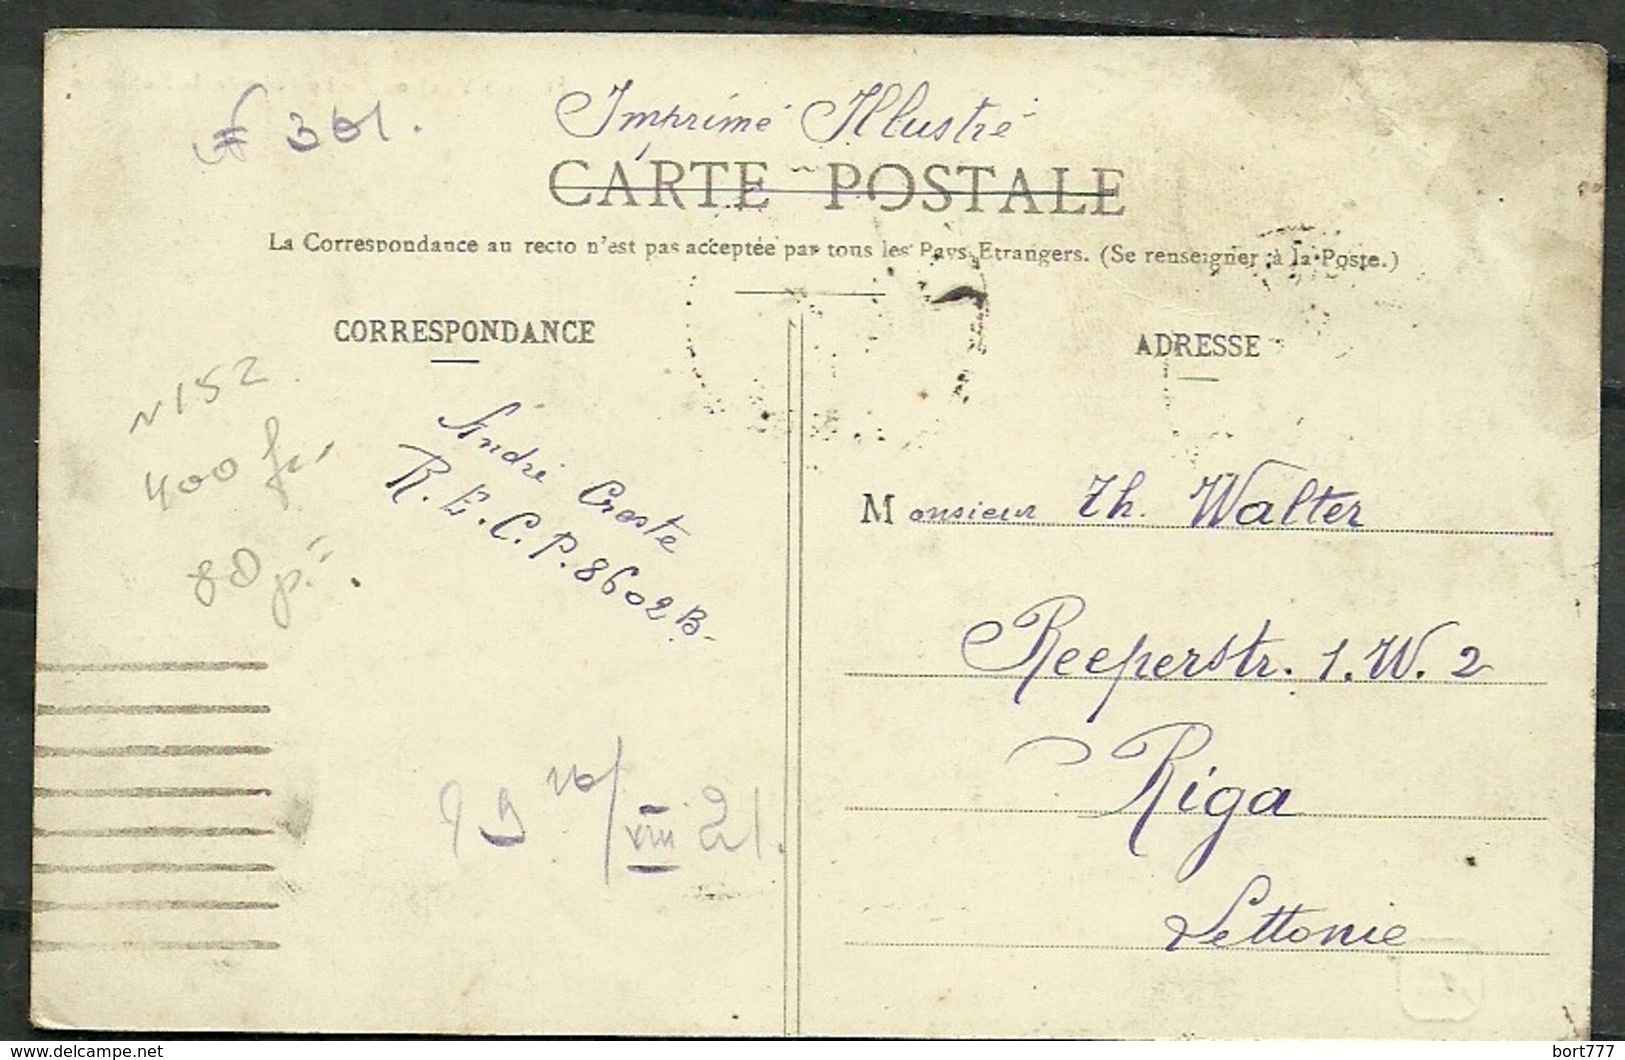 Imprimé Illustré
№ 301.
CARTE POSTALE
La Correspondance au recto n'est pas acceptée par tous les Pays Etrangers. (Se renseigner à la Poste.)
CORRESPONDANCE
№ 152
400 fr.
80 p.
André Croste
R.E.C.P. 8602 B.
VIII 21.
ADRESSE
Monsieur Th. Walter
Reeperstr. 1. W. 2
Riga
Lettonie
© https://www.delcampe.net/
bort777